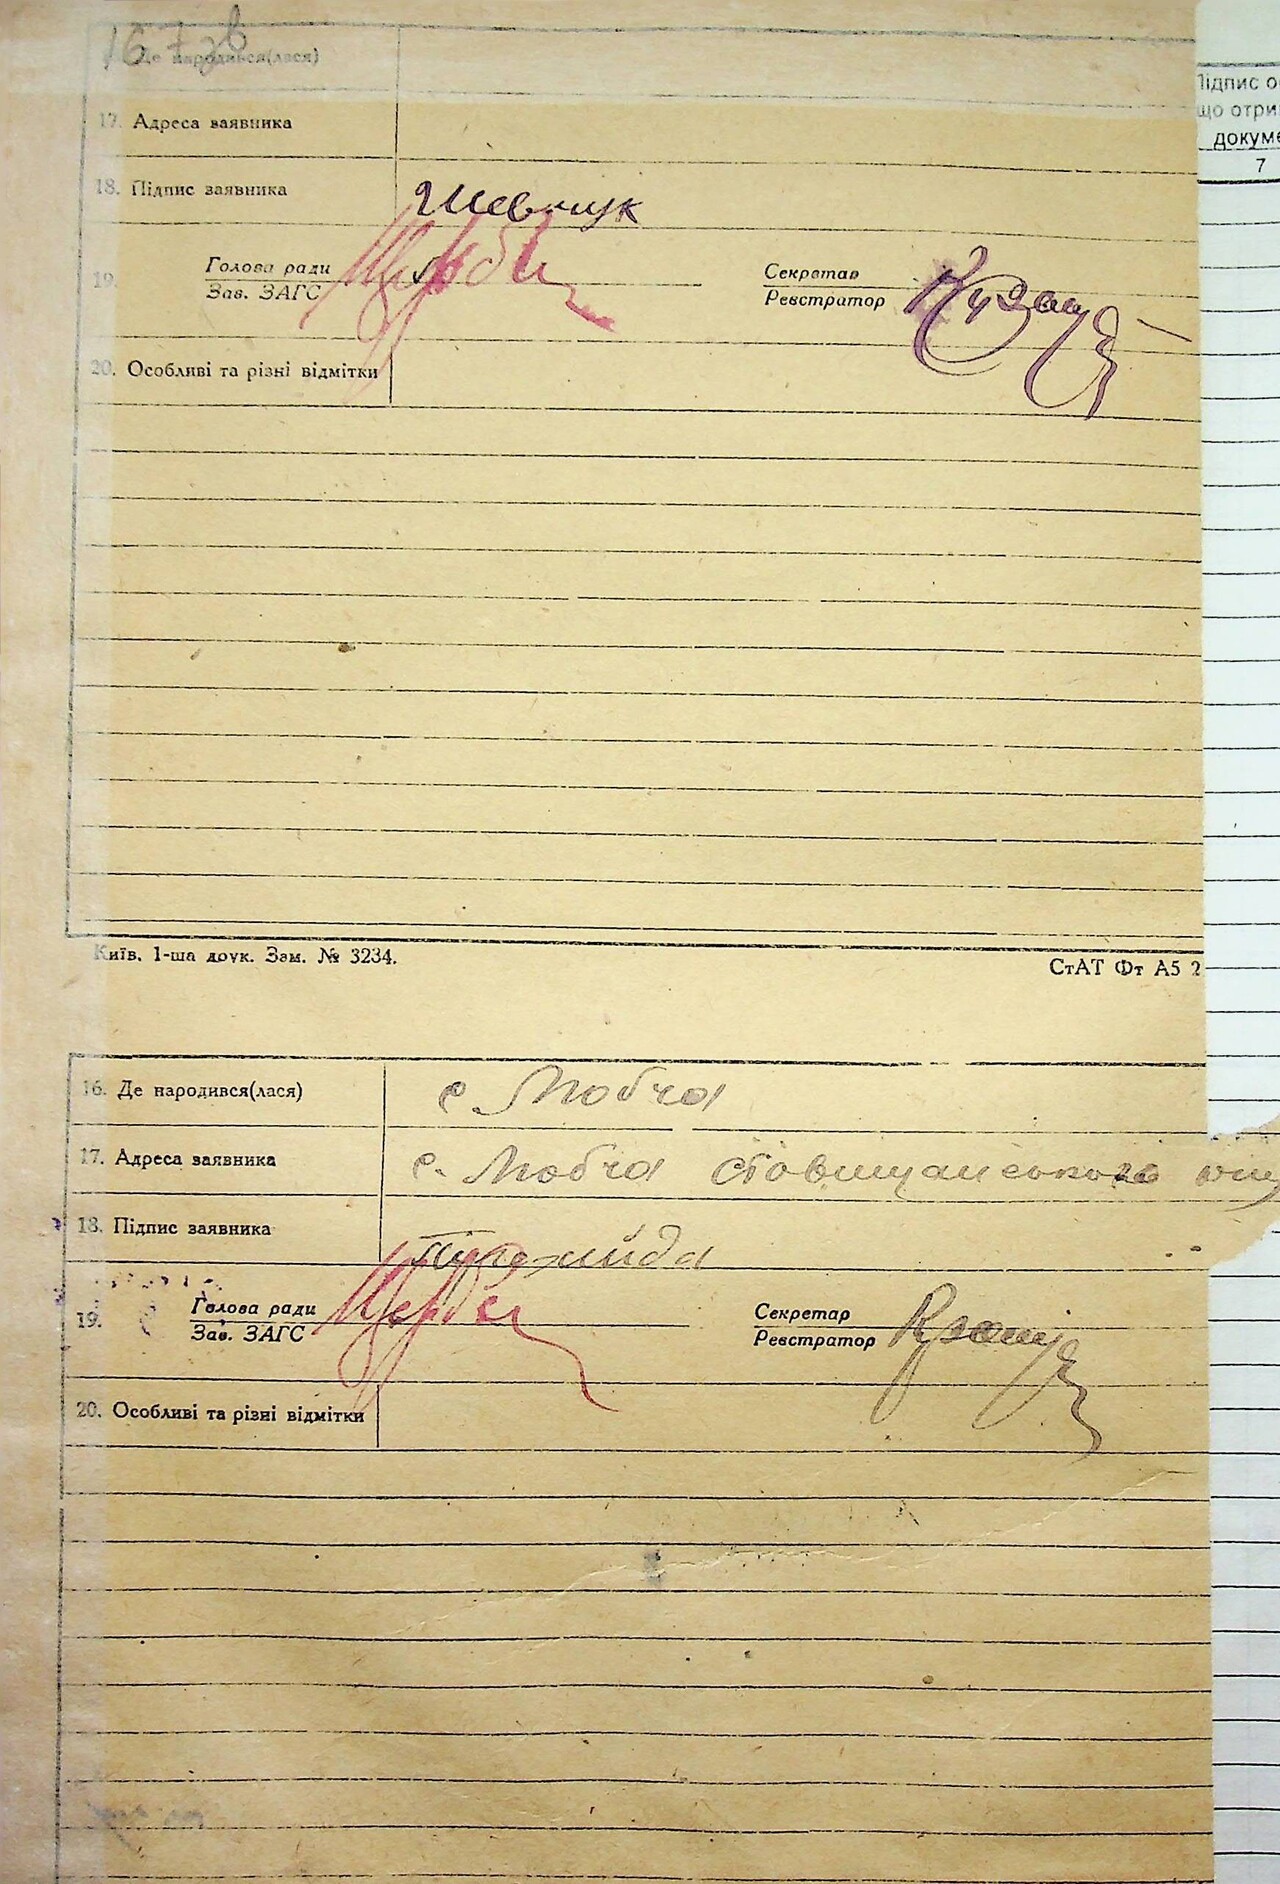 167зв
Де народився(лася)
Підпис о
що отри
докуме
7
17. Адреса заявника
18. Підпис заявника Шевчук
19. Голова ради
Зав. ЗАГС
Секретар
Реєстратор
20. Особливі та різні відмітки
Київ. 1-ша друк. Зам. № 3234.
СтАТ Фт А5 2
16. Де народився(лася) с. Любча
17. Адреса заявника с. Любча Ставищанського
18. Підпис заявника
19. Голова ради
Зав. ЗАГС
Секретар
Реєстратор
20. Особливі та різні відмітки